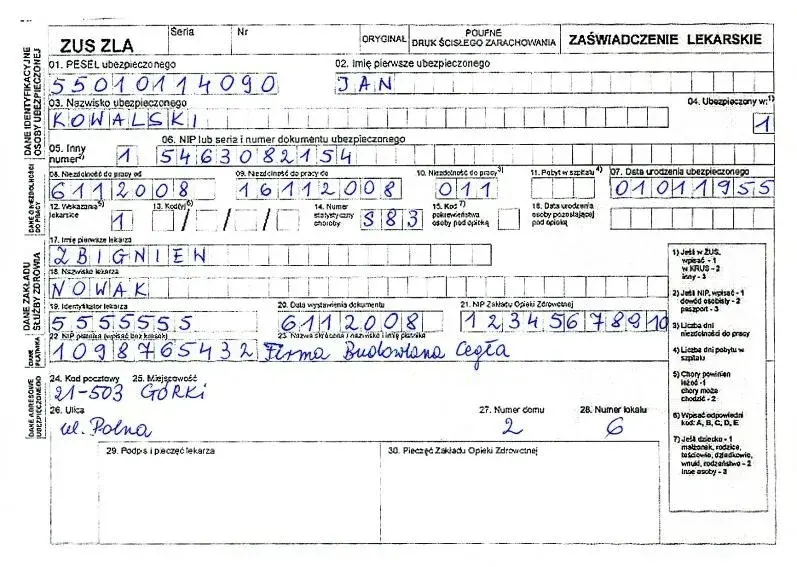 ZUS ZLA Seria Nr ORYGINAŁ POUFNE DRUK ŚCISŁEGO ZARACHOWANIA ZAŚWIADCZENIE LEKARSKIE
DANE IDENTYFIKACYJNE OSOBY UBEZPIECZONEJ
01. PESEL ubezpieczonego 02. Imię pierwsze ubezpieczonego
55010114090 JAN
03. Nazwisko ubezpieczonego 04. Ubezpieczony w:1)
KOWALSKI 1
05. Inny numer2) 06. NIP lub seria i numer dokumentu ubezpieczonego
1 5463082154
DANE O NIEZDOLNOŚCI DO PRACY
08. Niezdolność do pracy od 09. Niezdolność do pracy do 10. Niezdolność do pracy3) 11. Pobyt w szpitalu4) 07. Data urodzenia ubezpieczonego
6112008 16112008 011 01011955
12. Wskazania5) lekarskie 13. Kod(y)6) 14. Numer statystyczny choroby 15. Kod7) pokrewieństwa osoby pod opieką 16. Data urodzenia osoby pozostającej pod opieką
1 / / / S83
DANE ZAKŁADU SŁUŻBY ZDROWIA
17. Imię pierwsze lekarza
ZBIGNIEW
18. Nazwisko lekarza
NOWAK
19. Identyfikator lekarza 20. Data wystawienia dokumentu 21. NIP Zakładu Opieki Zdrowotnej
5555555 6112008 12345678910
DANE PŁATNIKA
22. NIP płatnika (wpisać bez kresek) 23. Nazwa skrócona / nazwisko i imię płatnika
1098765432 Firma Budowlana Cegła
DANE ADRESOWE UBEZPIECZONEGO
24. Kod pocztowy 25. Miejscowość
21-503 GÓRKI
26. Ulica 27. Numer domu 28. Numer lokalu
ul. Polna 2 6
29. Podpis i pieczęć lekarza 30. Pieczęć Zakładu Opieki Zdrowotnej
1) Jeśli w ZUS,
wpisać - 1
w KRUS - 2
inny - 3
2) Jeśli NIP, wpisać - 1
dowód osobisty - 2
paszport - 3
3) Liczba dni
niezdolności do pracy
4) Liczba dni pobytu w
szpitalu
5) Chory powinien
leżeć -1
chory może
chodzić - 2
6) Wpisać odpowiedni
kod: A, B, C, D, E
7) Jeśli dziecko - 1
małżonek, rodzice,
teściowie, dziadkowie,
wnuki, rodzeństwo - 2
inne osoby - 3